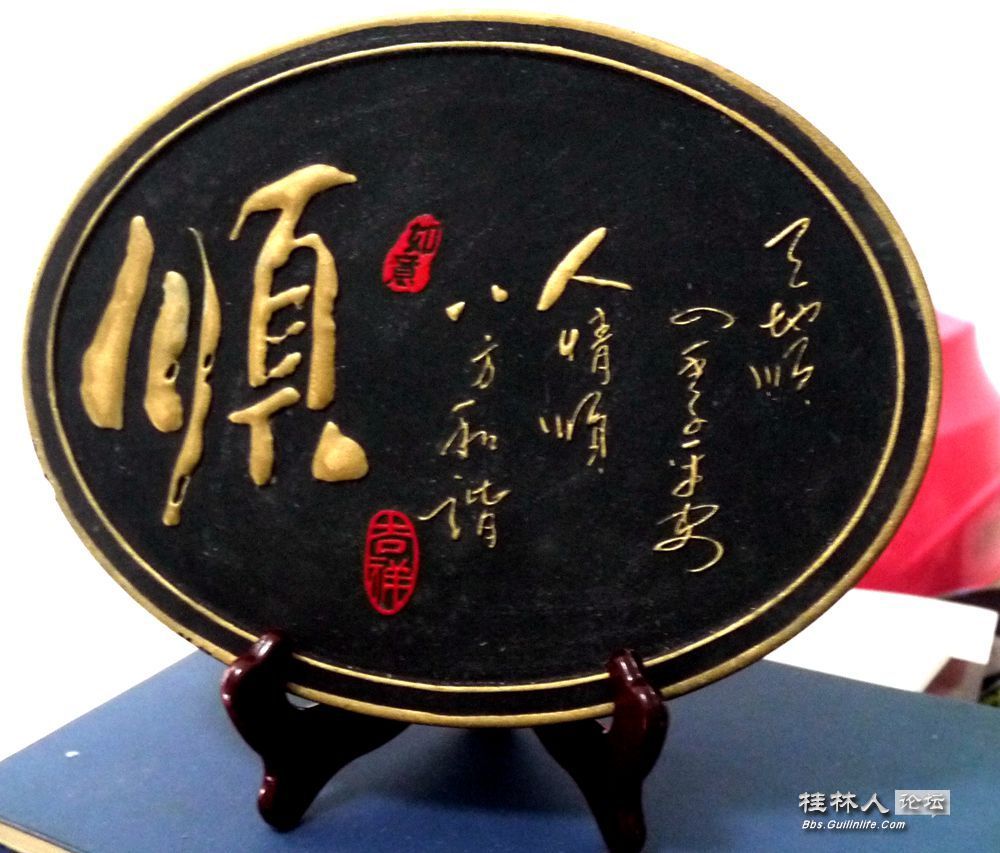 天地顺
四季平安
人情顺
八方和谐
如意
吉祥
順
桂林人论坛
Bbs.Guilinlife.com